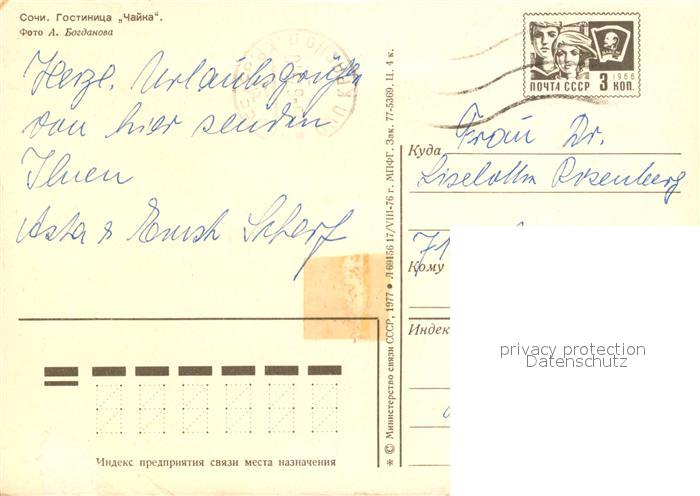 Сочи. Гостиница „Чайка“.
Фото А. Богданова
Herzl. Urlaubsgrüße
von hier senden
Ihnen
Asta & Ernst Scherf
ПОЧТА СССР
1966
3 КОП.
Frau Dr.
Куда
Liselotte Rosenberg
71
Кому
Индекс
privacy protection
Datenschutz
* © Министерство связи СССР, 1977 ● Л 69156 17/VIII-76 г. МПФГ. Зак. 77-5369. Ц. 4 к.
Индекс предприятия связи места назначения